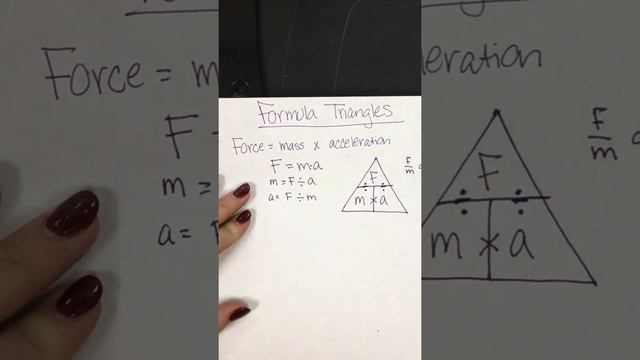 Formula Triangles
Force = mass x acceleration
F = m·a
m = F ÷ a
a = F ÷ m
F
÷ ÷
m x a
F
m